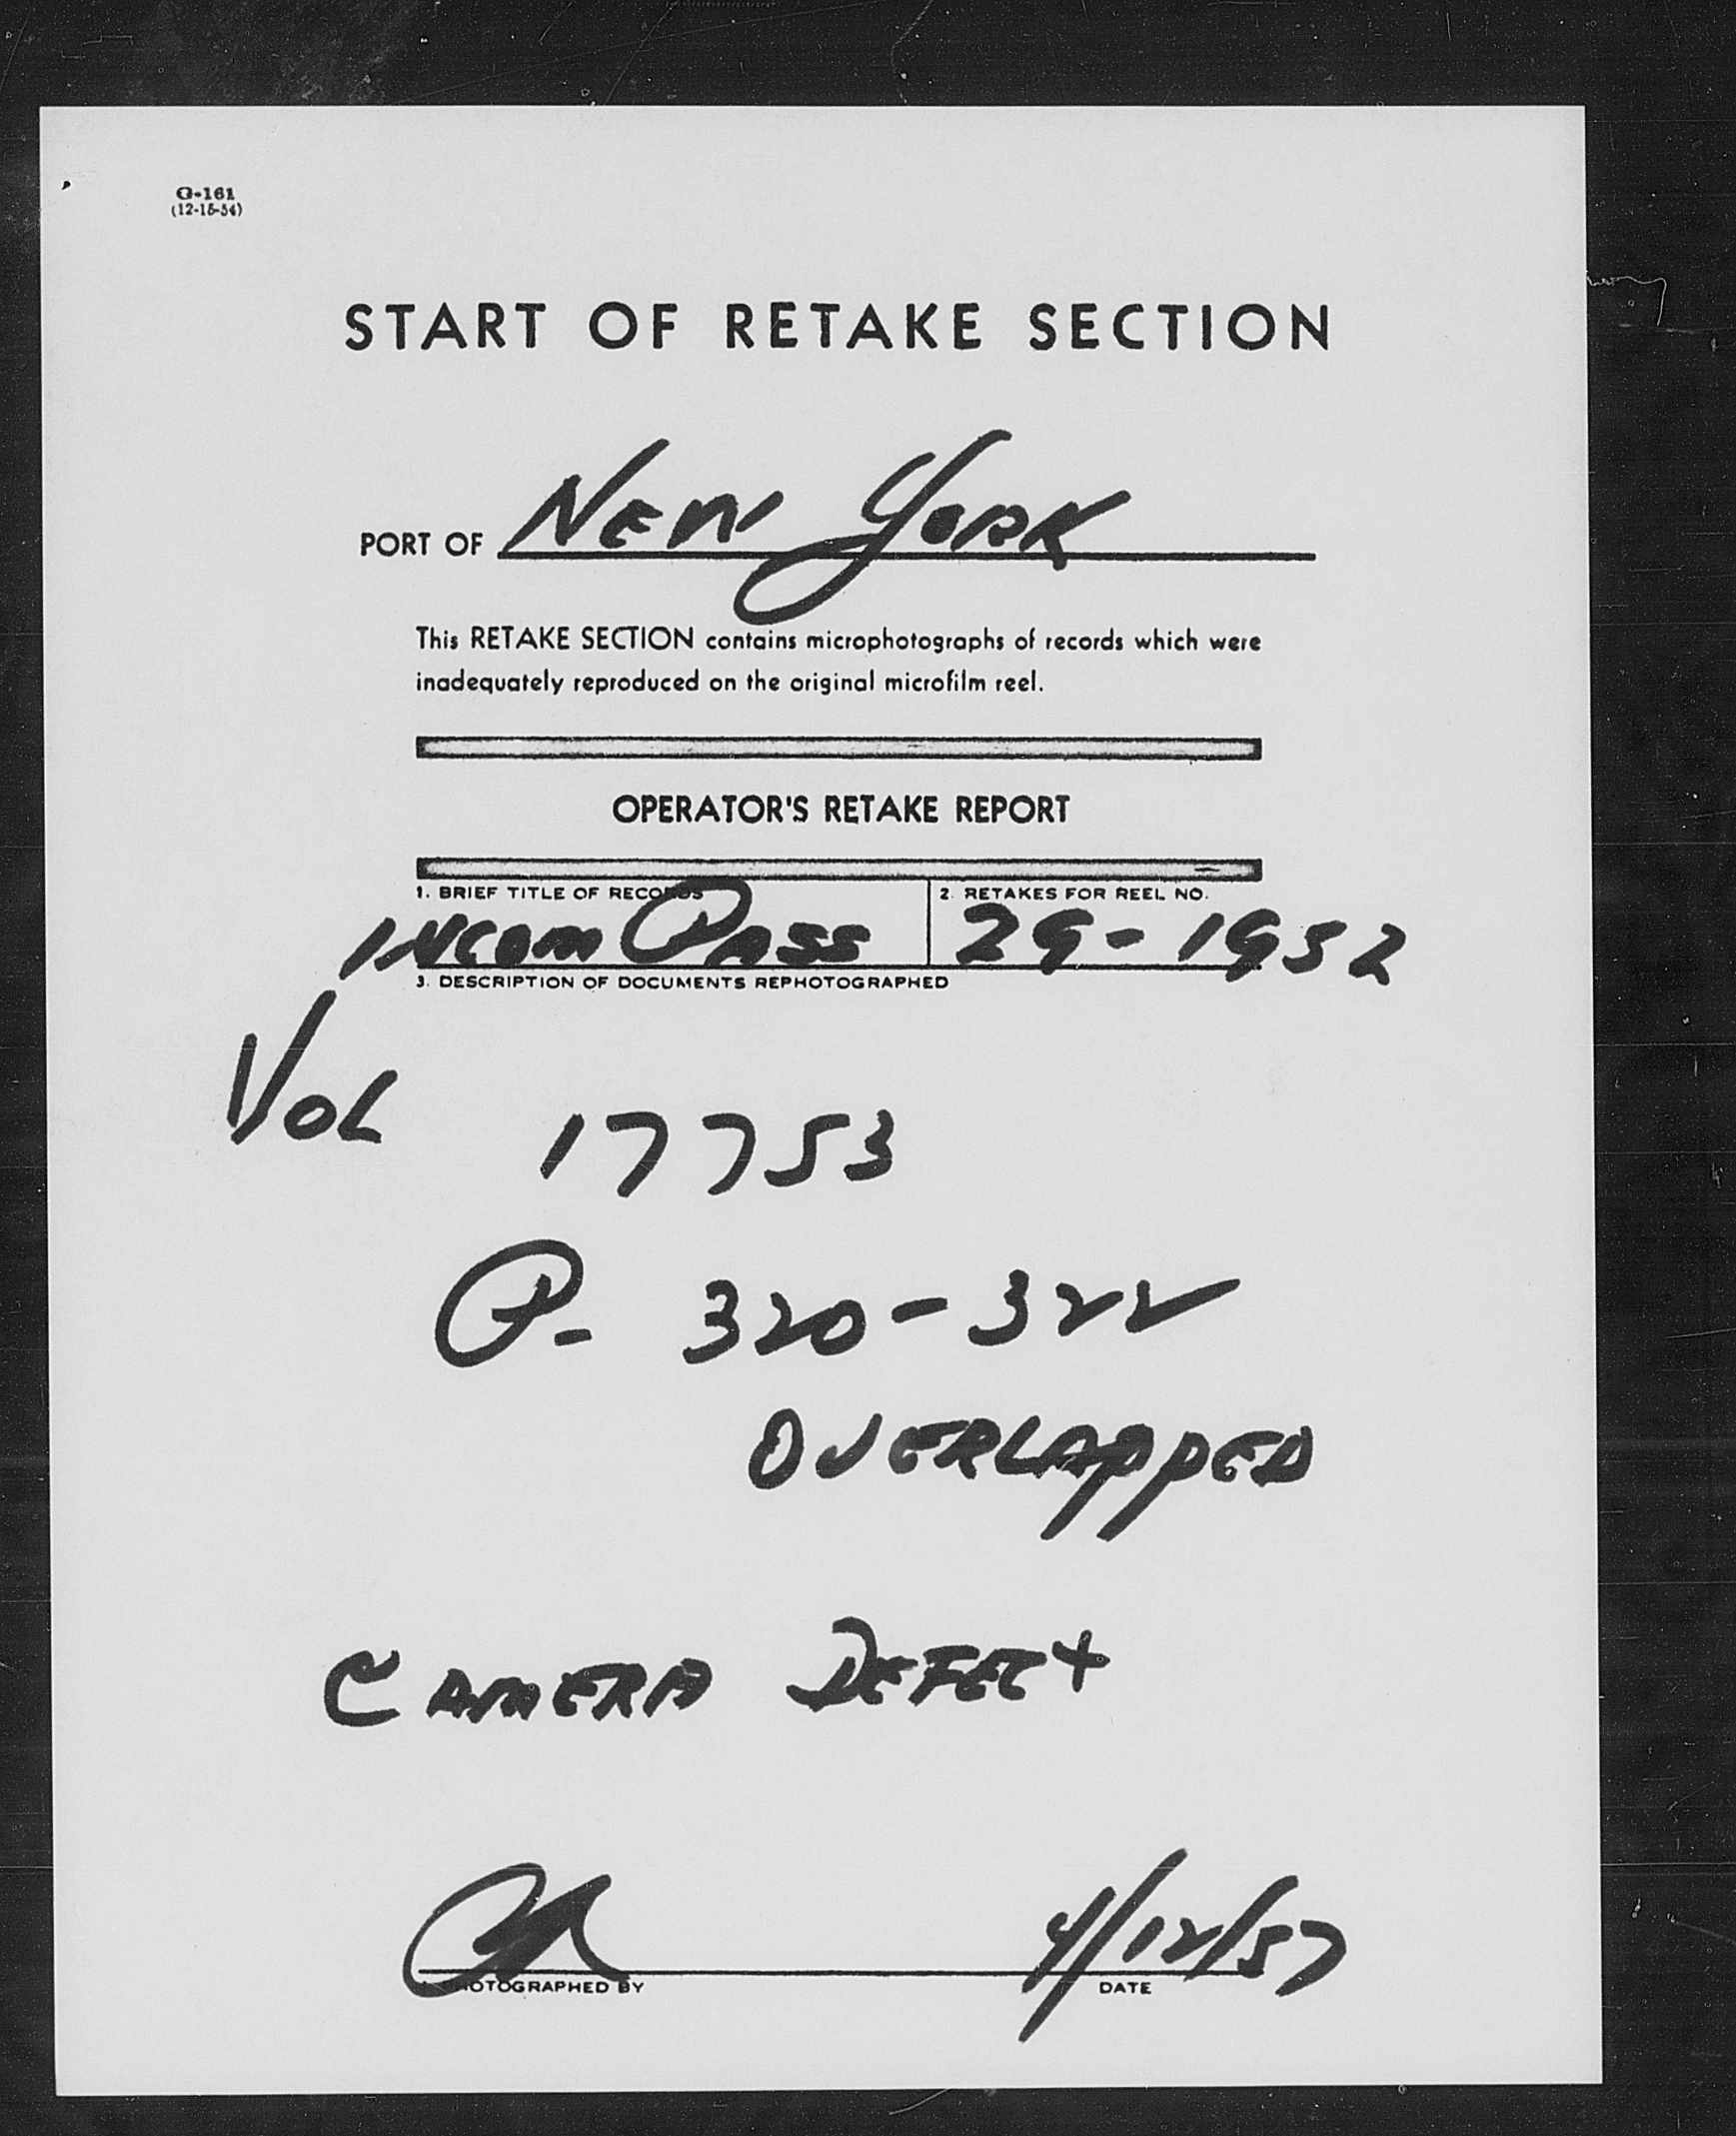 G-161
(12-15-54)
START OF RETAKE SECTION
PORT OF NEW YORK
This RETAKE SECTION contains microphotographs of records which were
inadequately reproduced on the original microfilm reel.
OPERATOR'S RETAKE REPORT
1. BRIEF TITLE OF RECORDS 2. RETAKES FOR REEL NO.
INCOM PASS 29-1952
3. DESCRIPTION OF DOCUMENTS REPHOTOGRAPHED
VOL 17753
P- 320-322
OVERLAPPED
CAMERA DEFECT
4/12/57
PHOTOGRAPHED BY DATE